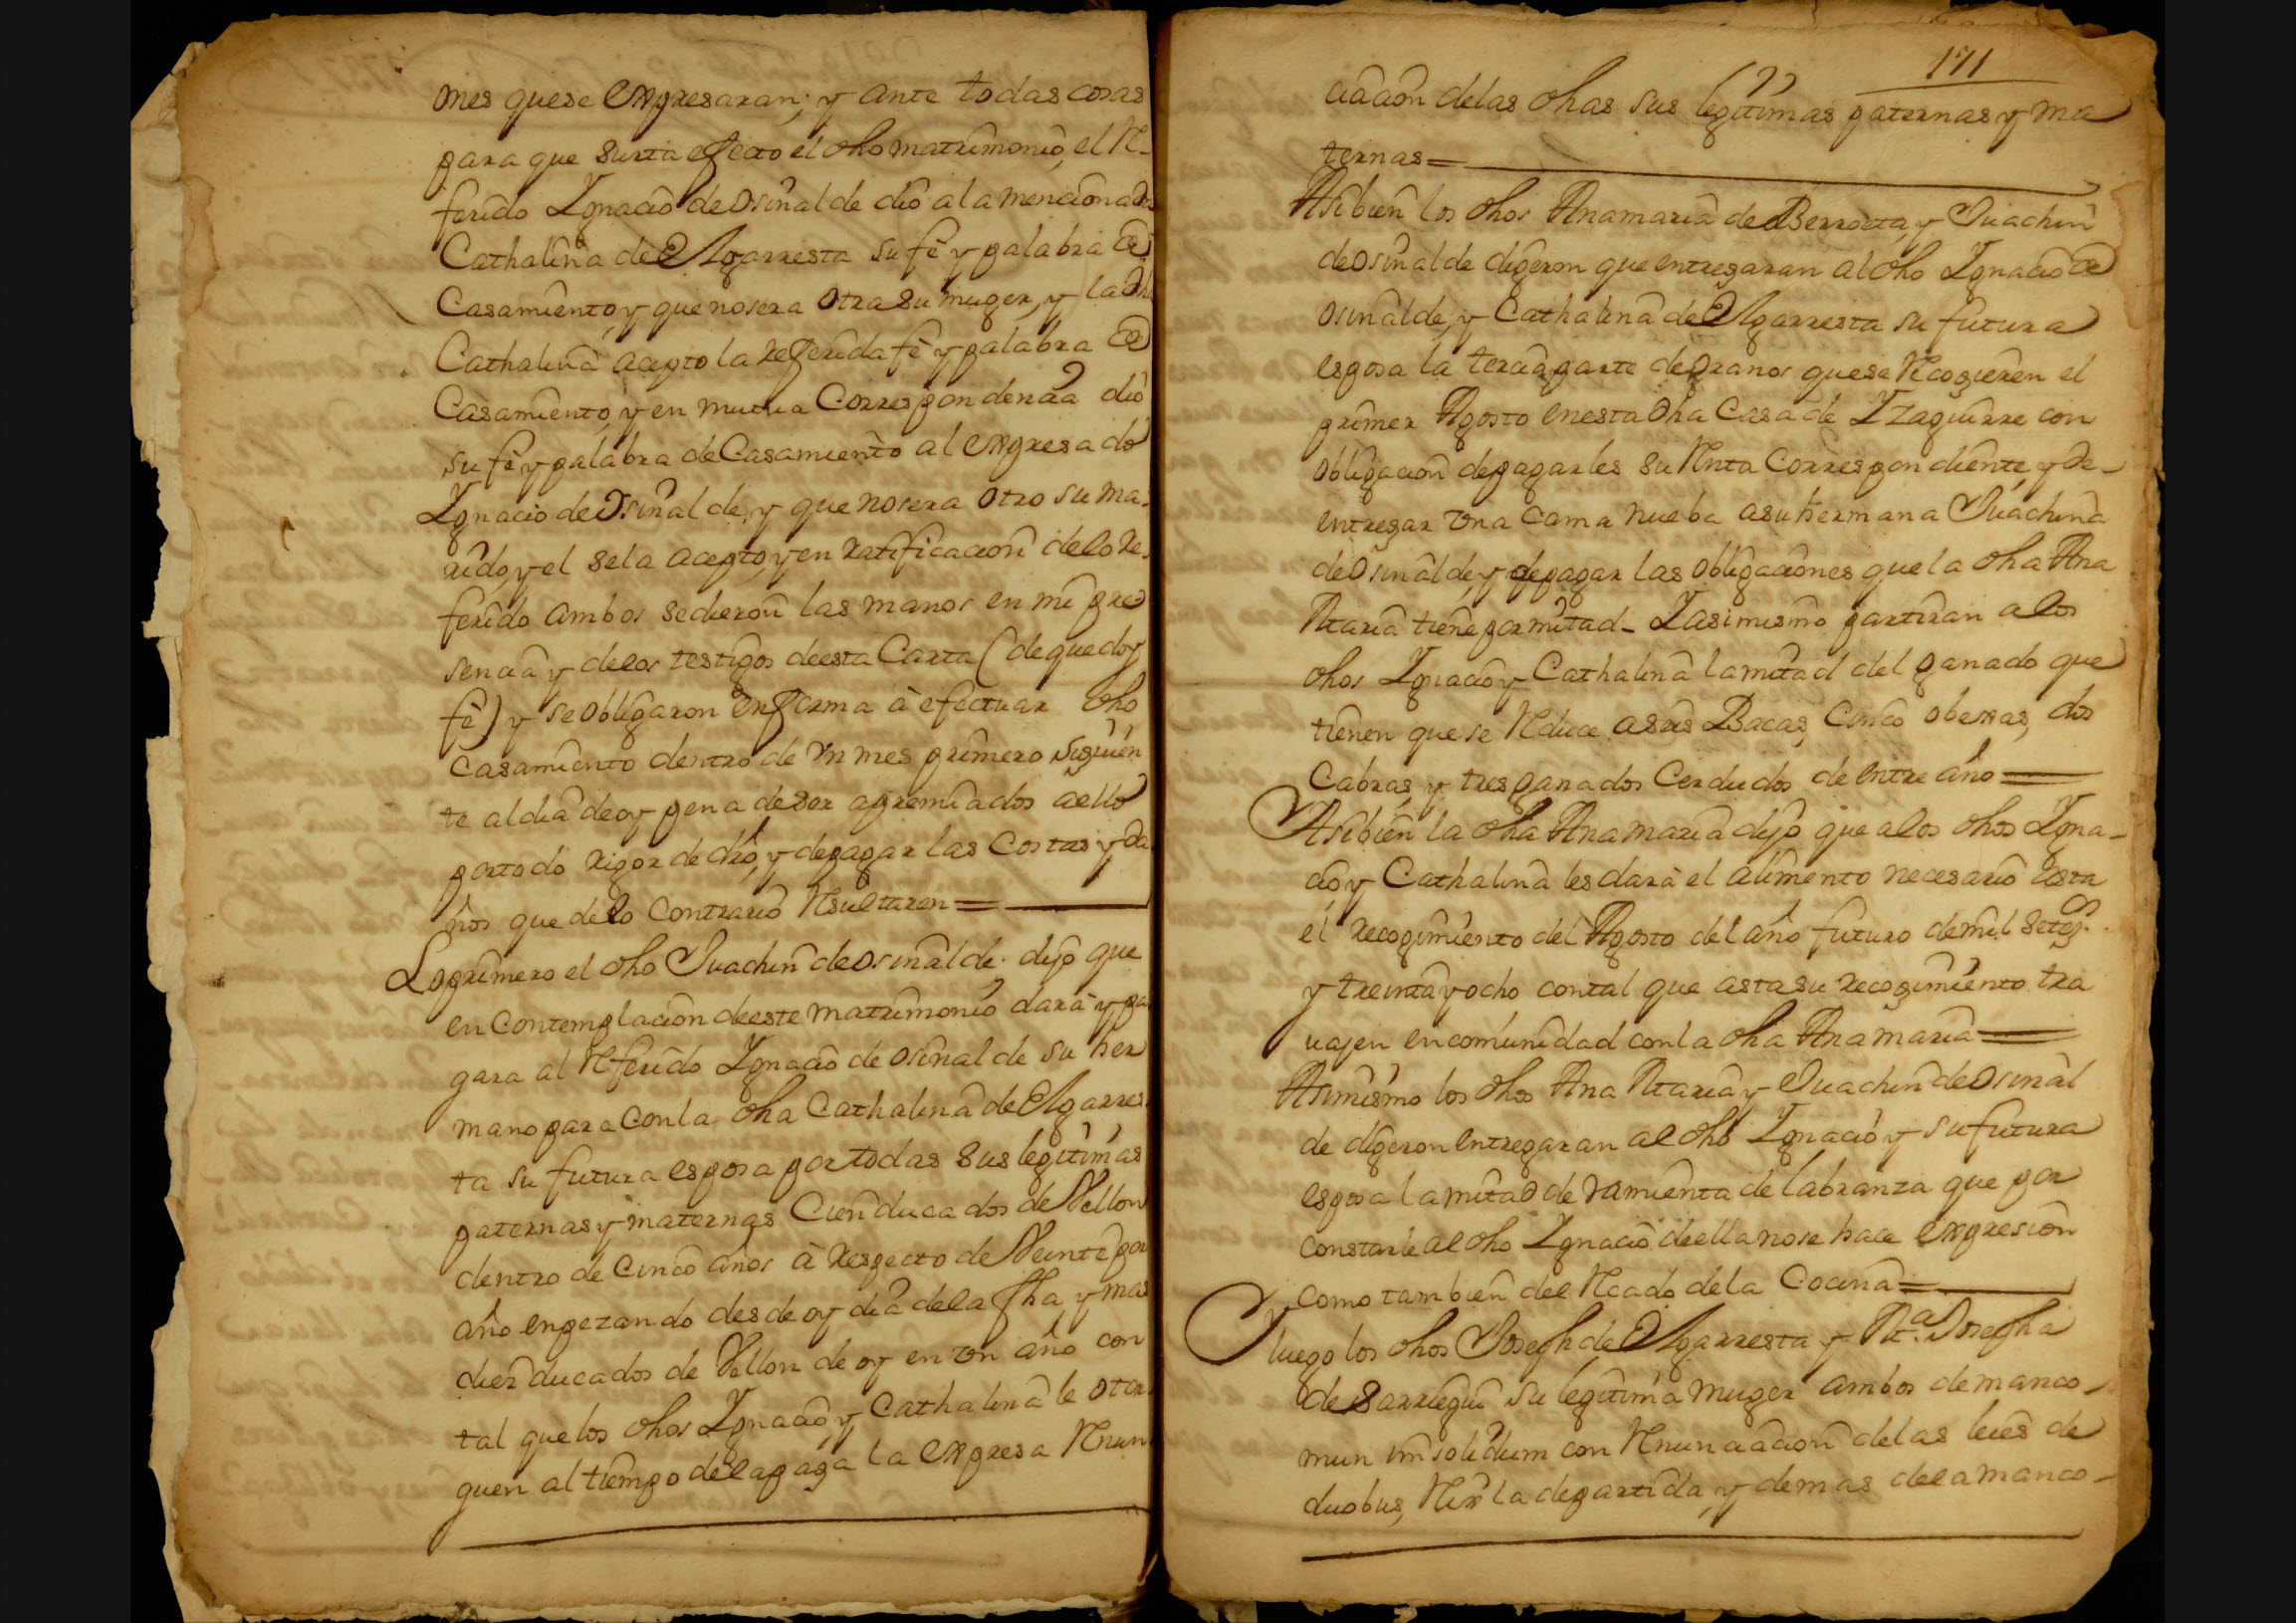 mes quese expresaran; y ante todas cosas
para que surta efecto el dho matrimonio, el Re-
ferido Ygnacio de Osinalde dio a la mencionada
Cathalina de Elgarresta su fè y palabra de
Casamiento, y que no sera otra su muger, y la dha
Cathalina acepto la referida fè y palabra de
Casamiento, y en mutua Correspondencia dio
su fè y palabra de Casamiento al expresado
Ygnacio de Osinalde, y que no sera otro su ma-
rido, y el se la acepto, y en ratificacion de lo re-
ferido ambos se dieron las manos en mi pre
sencia y de los testigos de esta Carta (de que doy
fè) y se obligaron en forma à efectuar dho
Casamiento dentro de un mes primero siguien
te al dia de oy pena de ser apremiados a ello
por todo rigor de dro, y de pagar las Costas y da
ños que de lo Contrario Resultaren =
Lo primero el dho Juachin de Osinalde dijo que
en Contemplacion de este matrimonio darà y pa
gara al Referido Ygnacio de Osinalde su her
mano para con la dha Cathalina de Elgarres
ta su futura esposa por todas sus legitimas
paternas y maternas Cien ducados de Vellon
dentro de cinco años à respecto de Veinte por
año enpezando desde oy dia de la fha y mas
diez ducados de Vellon de oy en un año con
tal que los dhos Ygnacio, y Cathalina le otor
guen al tiempo de la paga la expresa Renun
171
ciacion de las dhas sus legitimas paternas y ma
ternas =
Asibien los dhos Anamaria de Berroeta, y Juachin
de Osinalde digeron que entregaran al dho Ygnacio de
Osinalde, y Cathalina de Elgarresta su futura
esposa la tercia parte de Granos quese Recogieren el
primer Agosto en esta dha Casa de Yzaguirre con
obligacion de pagarles su Renta Correspondiente, y de-
entregar una cama nueba a su hermana Juachina
de Osinalde, y de pagar las obligaciones que la dha Ana
Maria tiene por mitad - Y asimismo partiran a los
dhos Ygnacio y Cathalina la mitad del ganado que
tienen que se Reduce a seis Bacas, Cinco obejas, dos
Cabras, y tres ganados Cerdudos de entre año =
Asibien la dha Anamaria dijo que a los dhos Ygna-
cio, y Cathalina les darà el alimento necesario asta
el recogimiento del Agosto del año futuro de mil seteƶ.s
y treinta y ocho con tal que asta su recogimiento tra
vajen en comunidad con la dha Anamaria =
Asimismo los dhos Ana Maria y Juachin de Osinal
de digeron entregaran al dho Ygnacio y su futura
esposa la mitad de ramienta de labranza que por
constarle al dho Ygnacio de ella no se hace expresion
como tambien del Reado de la Cocina =
Y luego los dhos Joseph de Elgarresta y Ma. Josepha
de Sarriegui su legitima muger ambos de manco-
mun in solidum con Renunciacion de las leies de
duobus, Rex la de partida, y demas de la manco-